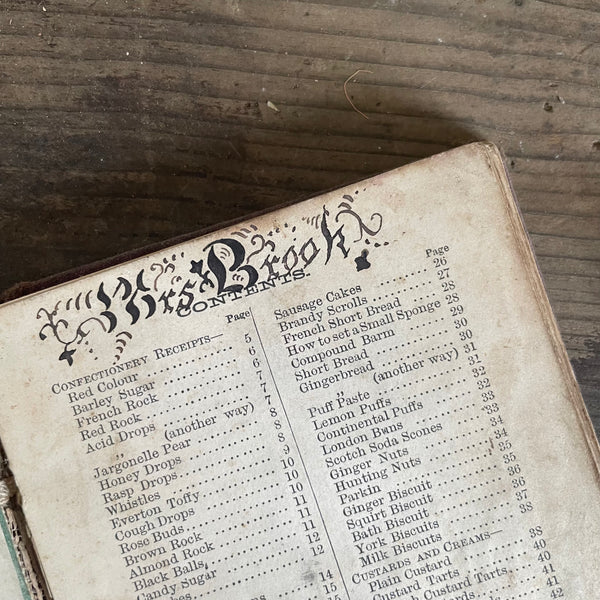 Mrs Brook
CONTENTS.
Page
CONFECTIONERY RECEIPTS—
Red Colour 5
Barley Sugar 6
French Rock 6
Red Rock 7
Acid Drops 7
„ (another way) 7
Jargonelle Pear 8
Honey Drops 8
Rasp Drops 9
Whistles 10
Everton Toffy 10
Cough Drops 10
Rose Buds 11
Brown Rock 11
Almond Rock 11
Black Balls 12
Candy Sugar 12
14
15
Page
Sausage Cakes 26
Brandy Scrolls 27
French Short Bread 28
How to set a Small Sponge 28
Compound Barn 29
Short Bread 30
Gingerbread 30
„ (another way) 31
Puff Paste 31
Lemon Puffs 32
Continental Puffs 32
London Buns 33
Scotch Soda Scones 33
Ginger Nuts 34
Hunting Nuts 34
Parkin 35
Ginger Biscuit 35
Squirt Biscuit 36
Bath Biscuit 36
York Biscuits 37
Milk Biscuits 38
CUSTARDS AND CREAMS—
Plain Custard 38
Custard Tarts 40
Custard Tarts 41
42